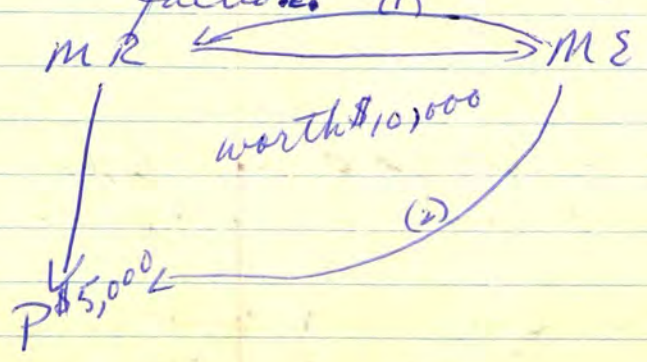 (1)
MR ME
worth $10,000
(2)
P $5,000